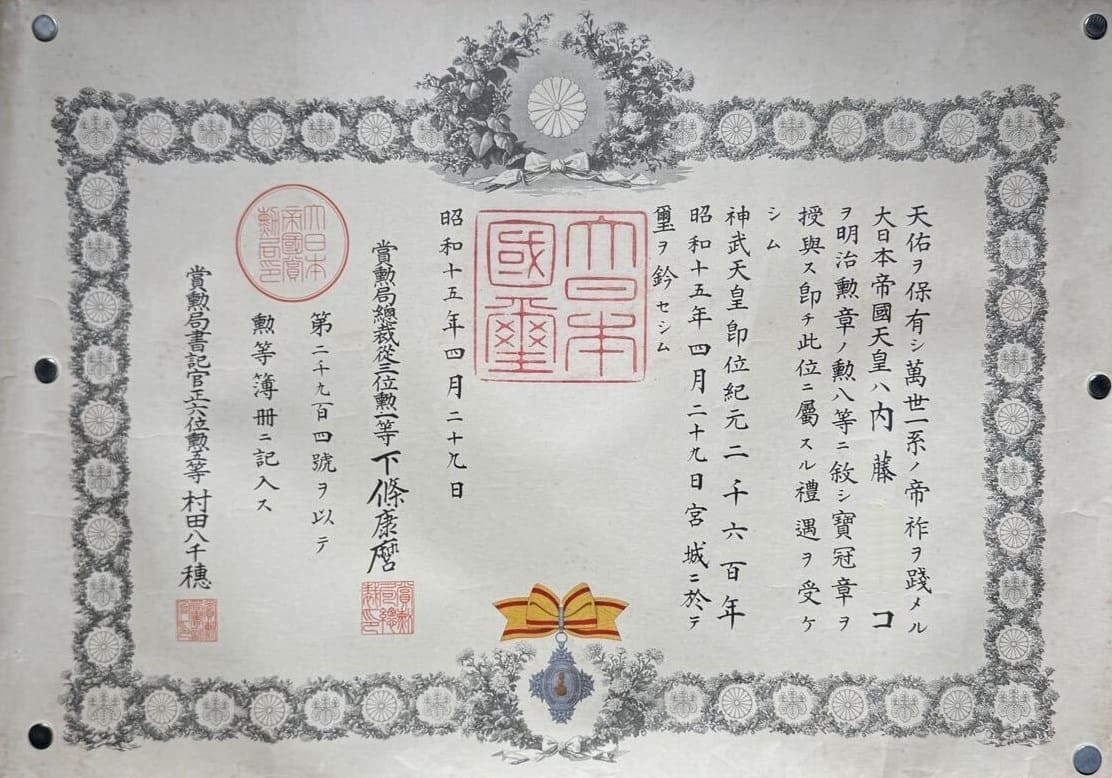 天佑ヲ保有シ萬世一系ノ帝祚ヲ踐メル
大日本帝國天皇ハ内藤コ
ヲ明治勲章ノ勲八等ニ敘シ寶冠章ヲ
授與ス即チ此位ニ屬スル禮遇ヲ受ケ
シム
神武天皇即位紀元二千六百年
昭和十五年四月二十九日宮城ニ於テ
璽ヲ鈐セシム
大日本
國璽
昭和十五年四月二十九日
賞勲局總裁從三位勲一等下條康麿
賞勲
局總
裁印
第二千九百四號ヲ以テ
勲等簿册ニ記入ス
大日本
帝國賞
勲局印
賞勲局書記官正六位勲五等村田八千穗